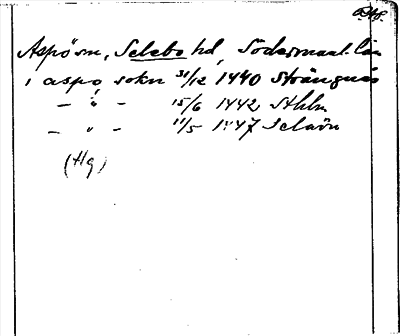 Aspösn, Selebo hd, Södermanl. län
i aspo sokn 31/12 1440 Strängnäs
— " — 15/6 1442 Sthlm
— " — 11/5 1447 Selaön
(Hg)